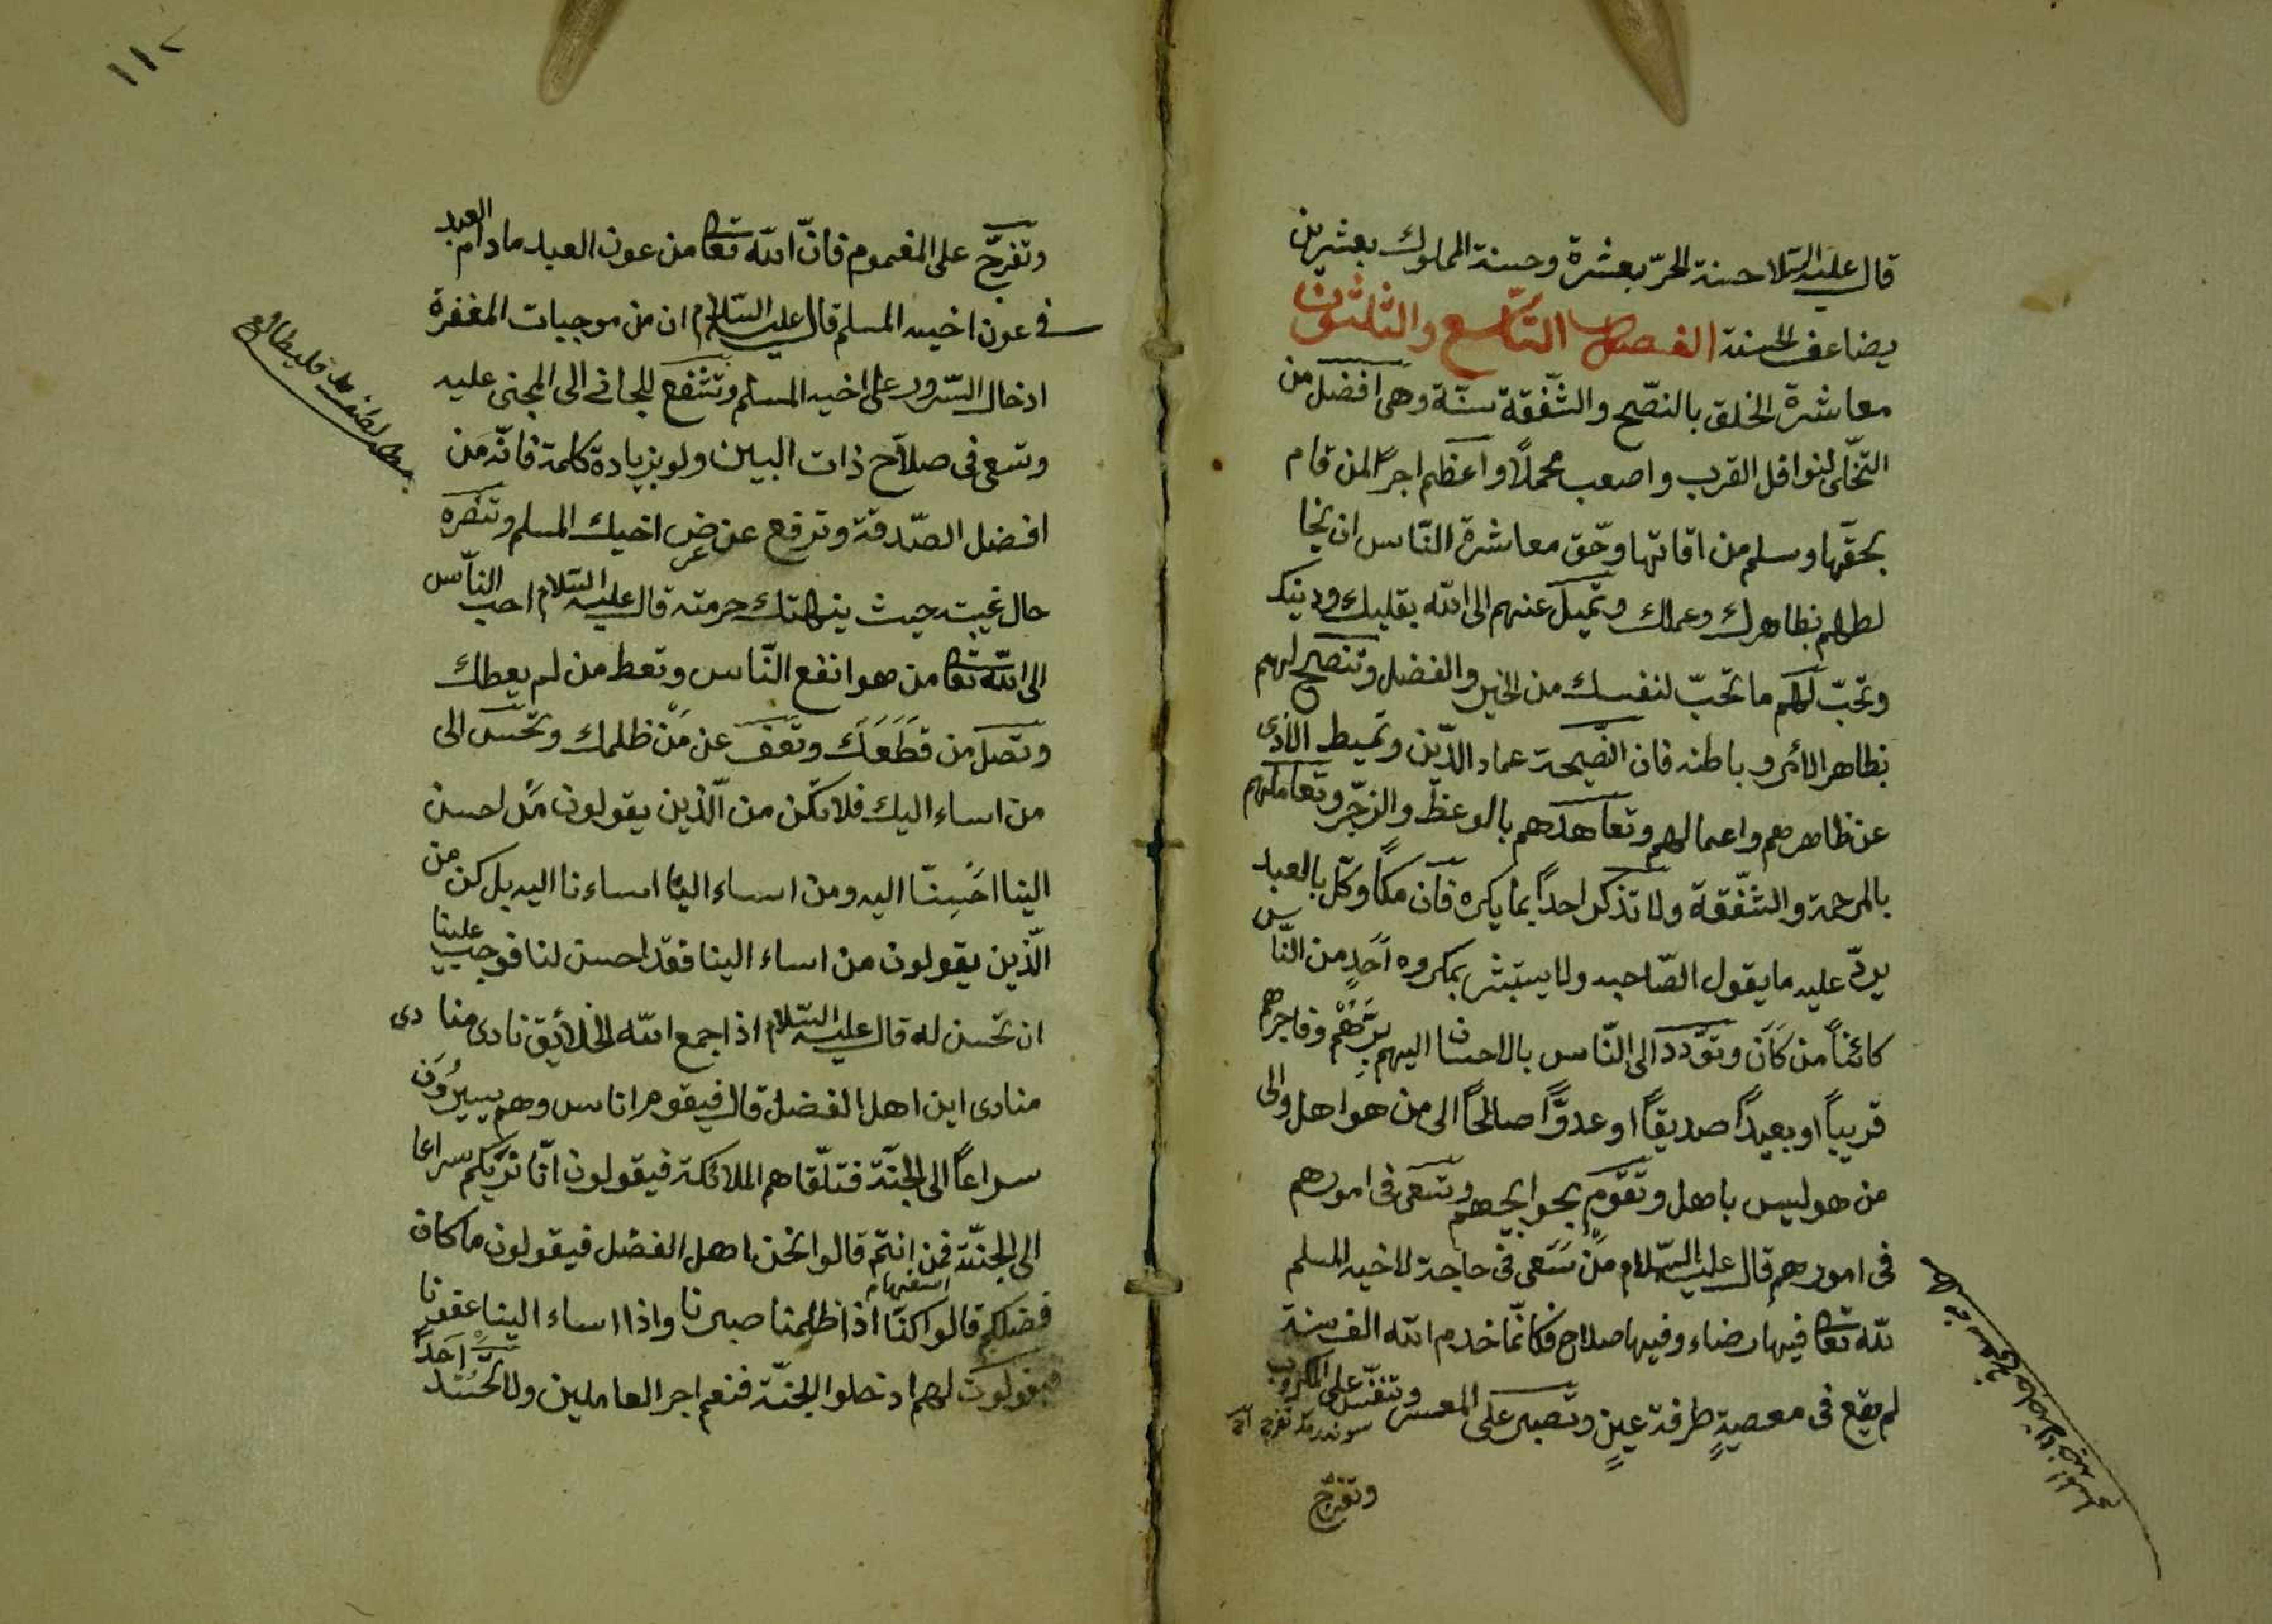 قال عليه السلام حسنة الحرّ بعشرة وحسنة المملوك بعشرين
يضاعف الحسنة الفصل التّاسع والثلثون
معاشرة الخلق بالنصح والشّفقة سنّة وهى افضل من
التخلّى لنوافل القرب واصعب محملاً واعظم اجراً لمن قام
بحقّها وسلم من افاتها وحّق معاشرة النّاس ان
بظاهرك وعملك وتميل عنهم الى الله بقلبك ودينك
وتحبّ لهم ما تحبّ لنفسك من الخير والفضل وتنصح لهم
بظاهر الأمر وباطنه فان النصيحة عماد الدّين وتميط الاذى
عن ظاهرهم واعمالهم وتعاهدهم بالوعظ والزجر وتعاملهم
بالمرحمة والشّفقة ولا تذكر احداً بما يكره فان مكاً وكّل بالعبد
يردّ عليه ما يقول الصّاحبه ولا يستبشر بمكروه احدٍ من النّاس
كائناً من كان وتودّد الى النّاس بالاحسان اليهم برّهم وفاجرهم
قريباً او بعيداً صديقاً او عدوّاً صالحاً الى من هو اهل والى
من هو ليس باهل وتقوم بحوايجهم وتسعى فى امورهم
فى امورهم قال عليه السّلام من سَعى فى حاجة لاخيه المسلم
لله تعا فيها رضاء وفيها صلاح فكانّما خدم الله الف سنة
لم يقع فى معصيةٍ طرفة عينٍ وتصبر على المعسر وتنفّس على المكروب
وتفرج
١١٢
وتفرج على المغموم فانّ الله تعا من عون العبد مادام العبد
فى عون اخيه المسلم قال عليه السّلام ان من موجبات المغفرة
ادخال السّرور على اخيه المسلم وتشفع للجانى الى المجنى عليه
وتسعى فى صلاح ذات البين ولو بزيادة كلمة فانّه من
افضل الصّدقة وترفع عن عرض اخيك المسلم وتنصره
حال غيبته حيث ينهتك حرمته قال عليه السّلام احب النّاس
الى الله تعا من هو انفع النّاس وتعط من لم يعطك
وتصل من قطَعَكَ وتعف عن مَن ظلمك وتحسن الى
من اساء اليك فلا تكن من الّذين يقولون من احسن
الينا احسِنّا اليه ومن اساء الينا اساءنا اليه بل كن من
الّذين يقولون من اساء الينا فقد احسن لنا فوجب علينا
ان تحسن له قال عليه السّلام اذا جمع الله الخلائق نادى منادى
منادى اين اهل الفضل قال فيقوم اناس وهم يسيرُون
سراعاً الى الجنّة فتلّقاهم الملائكة فيقولون انّا نريكم سراعا
الى الجنّة فمن انتم قالوا نحن اهل الفضل فيقولون ما كان
استفهام
فضلكم قالوا كنّا اذا ظلمنا صبرنا واذا اساء الينا عفونا
فيقولون لهم ادخلوا الجنّة فنعم اجر العاملين ولا احَداً